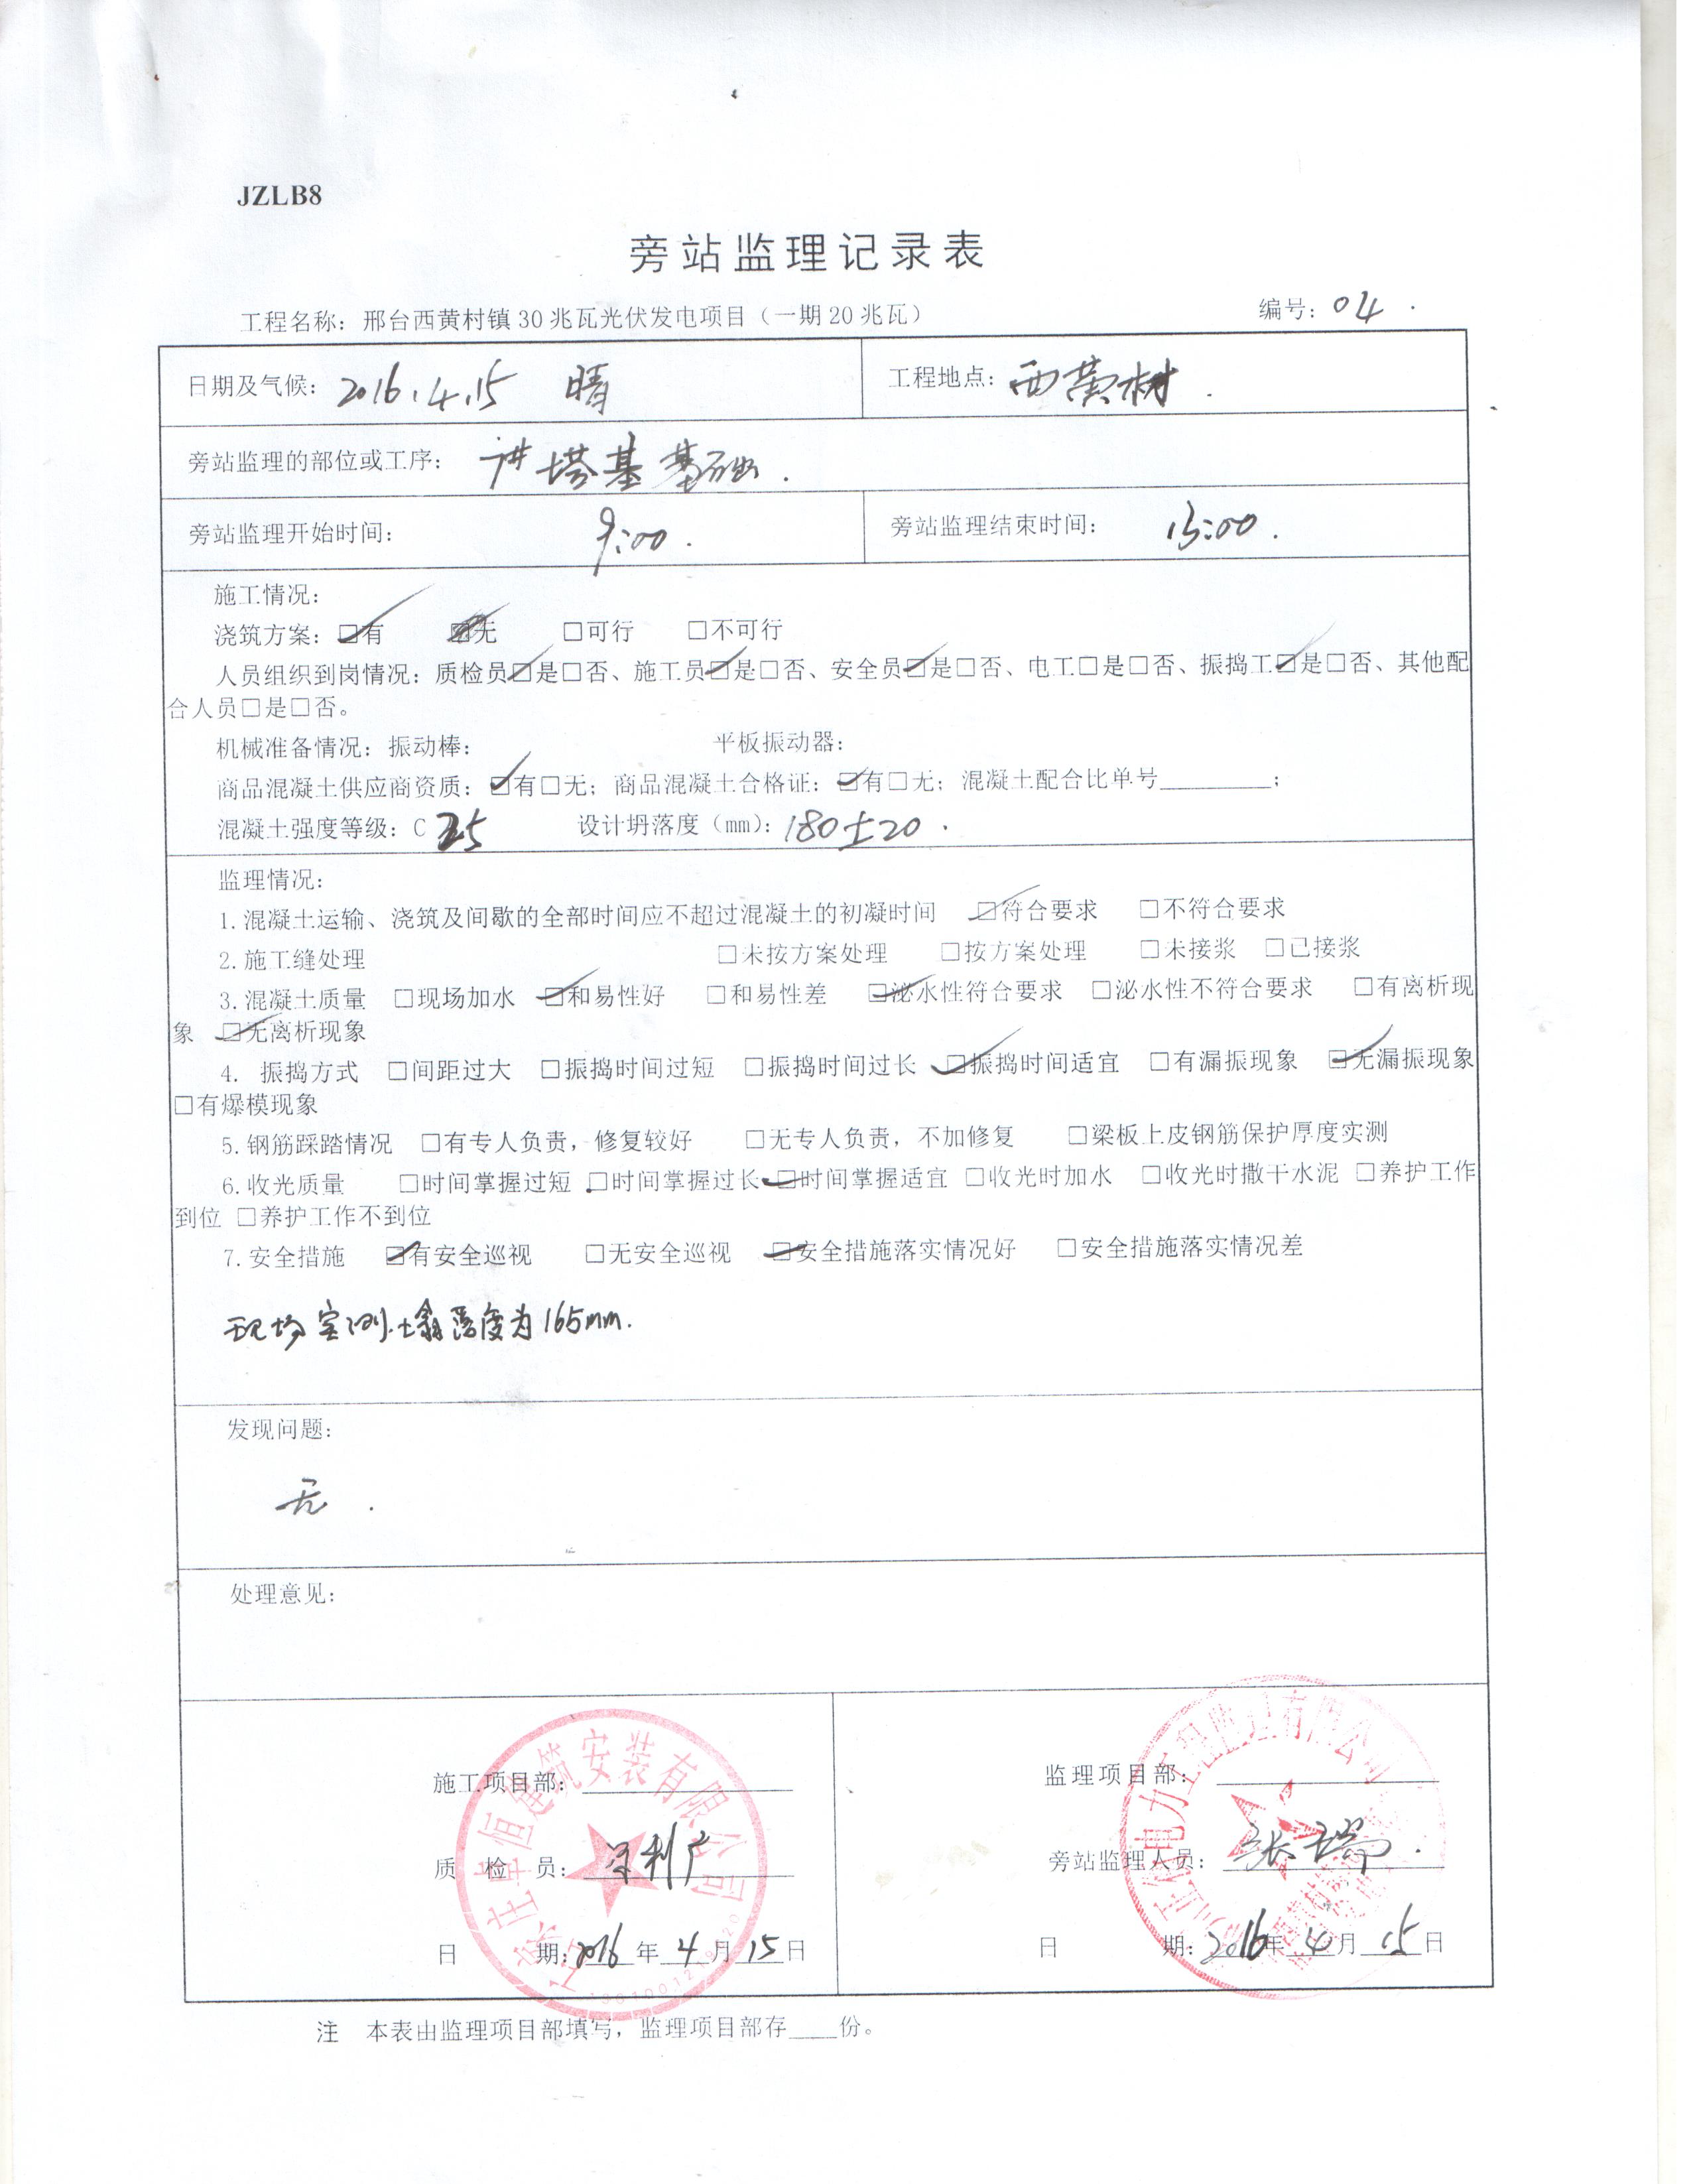 JZLB8
旁站监理记录表
工程名称：邢台西黄村镇30兆瓦光伏发电项目（一期20兆瓦） 编号：04
日期及气候：2016.4.15 晴 工程地点：西黄村
旁站监理的部位或工序： 塔基基础.
旁站监理开始时间： 9:00. 旁站监理结束时间： 15:00.
施工情况：
浇筑方案：☑有 ☐无 ☐可行 ☐不可行
人员组织到岗情况：质检员☑是☐否、施工员☑是☐否、安全员☑是☐否、电工☐是☐否、振捣工☑是☐否、其他配
合人员☐是☐否。
机械准备情况：振动棒： 平板振动器：
商品混凝土供应商资质：☑有☐无；商品混凝土合格证：☑有☐无；混凝土配合比单号________；
混凝土强度等级：C 设计坍落度（mm）：180±20.
监理情况：
1.混凝土运输、浇筑及间歇的全部时间应不超过混凝土的初凝时间 ☑符合要求 ☐不符合要求
2.施工缝处理 ☐未按方案处理 ☐按方案处理 ☐未接浆 ☐已接浆
3.混凝土质量 ☐现场加水 ☑和易性好 ☐和易性差 ☑泌水性符合要求 ☐泌水性不符合要求 ☐有离析现
象 ☑无离析现象
4. 振捣方式 ☐间距过大 ☐振捣时间过短 ☐振捣时间过长 ☑振捣时间适宜 ☐有漏振现象 ☑无漏振现象
☐有爆模现象
5.钢筋踩踏情况 ☐有专人负责，修复较好 ☐无专人负责，不加修复 ☐梁板上皮钢筋保护厚度实测
6.收光质量 ☐时间掌握过短 ☐时间掌握过长 ☑时间掌握适宜 ☐收光时加水 ☐收光时撒干水泥 ☐养护工作
到位 ☐养护工作不到位
7.安全措施 ☑有安全巡视 ☐无安全巡视 ☑安全措施落实情况好 ☐安全措施落实情况差
现场实测塌落度为165mm.
发现问题：
无.
处理意见：
施工项目部： 监理项目部：
质 检 员： 旁站监理人员：张瑞
日 期：2016年4月15日 日 期：2016年4月15日
注 本表由监理项目部填写，监理项目部存____份。
恒建筑安装有限公司
电力工程监理有限公司